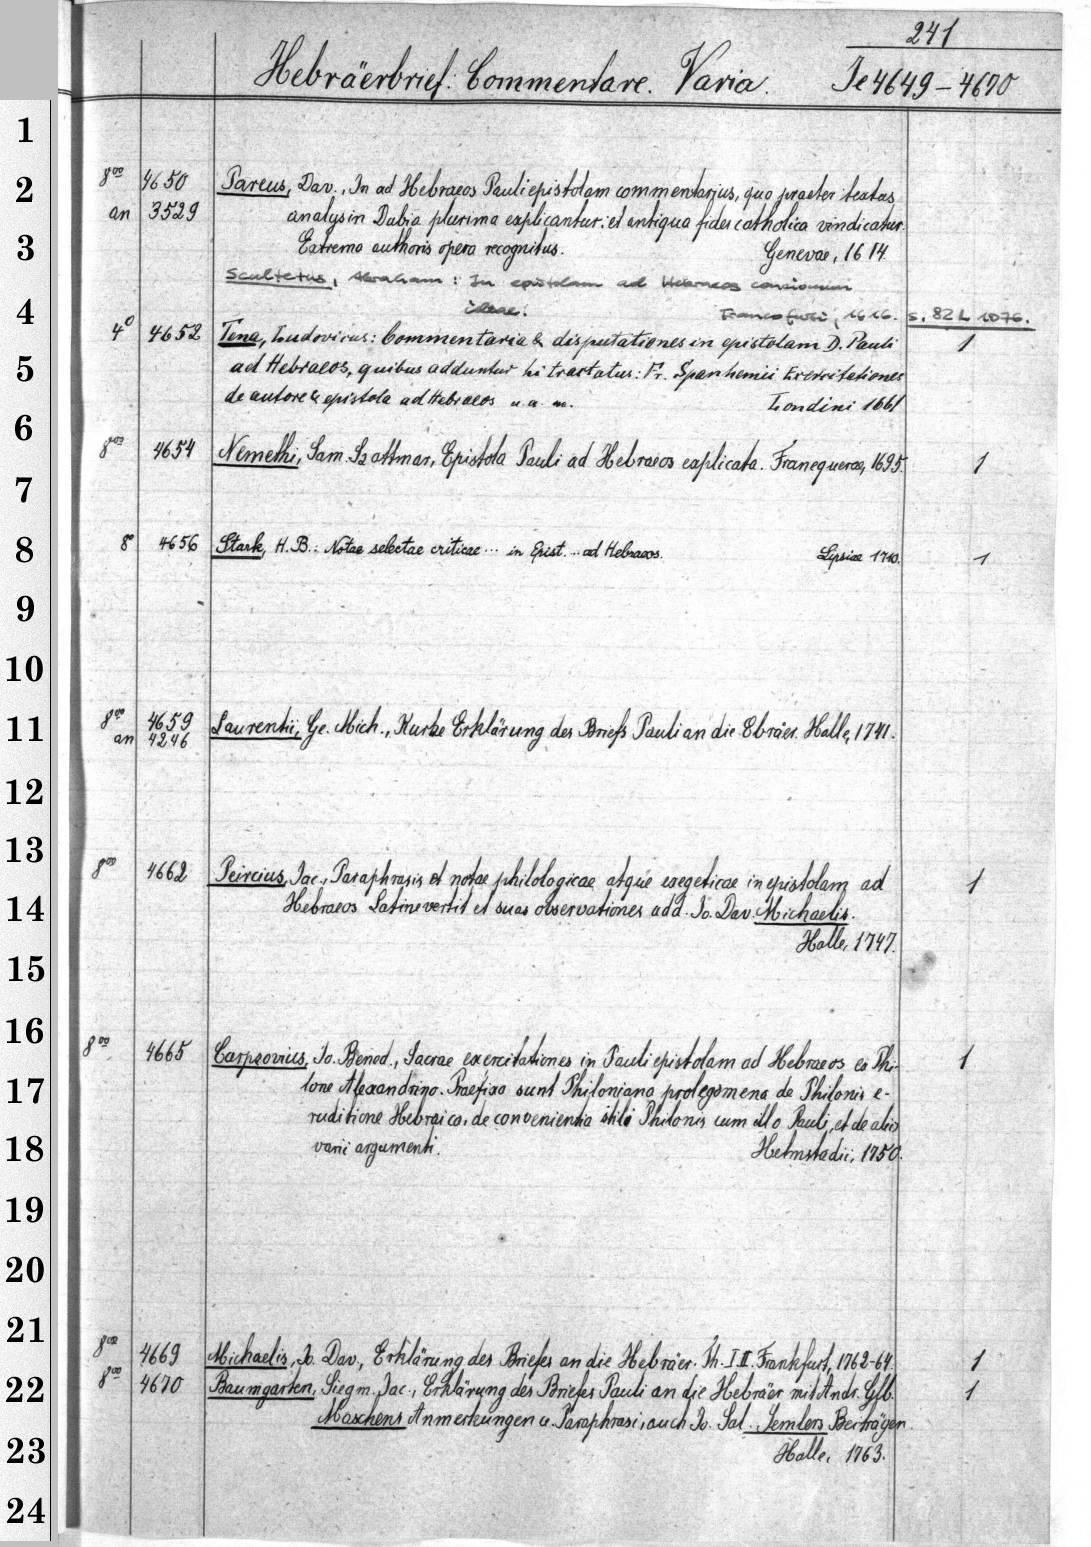 241
Hebräerbrief: Commentare. Varia. Ie 4649-4670
1
8°° 4650 Pareus, Dav., In ad Hebraeos Pauli epistolam commentarius, quo praeter textus
2
an 3529 analysin Dubia plurima explicantur: et antiqua fides catholica vindicatur.
3
Extrema authoris opera recognitus. Genevae, 1614
Scultetus, Abraham: In epistolam ad Hebraeos concionum
4
ideae. Francofurti, 1616. s. 82 L 1076.
4° 4652 Tena, Ludovicus: Commentaria & disputationes in epistolam D. Pauli 1
5
ad Hebraeos, quibus adduntur hi tractatus: Fr. Spanhemii Exercitationes
de autore & epistola ad Hebraeos u. a. m. Londini 1661
6
8°° 4654 Nemethi, Sam. Szattmar, Epistola Pauli ad Hebraeos explicata. Franequerae, 1695. 1
7
8
8° 4656 Stark, H. B.: Notae selectae criticae ... in Epist. ... ad Hebraeos. Lipsiae 1710. 1
9
10
8°° 4659 Laurentii, Ge. Mich., Kurtze Erklärung des Briefs Pauli an die Ebräer. Halle, 1741.
11
an 4246
12
13
8°° 4662 Peircius, Jac., Paraphrasis et notae philologicae atque exegeticae in epistolam ad 1
14
Hebraeos Latine vertit et suas observationes add. Jo. Dav. Michaelis.
Halle, 1747.
15
16
8°° 4665 Carpzovius, Jo. Bened., Sacrae exercitationes in Pauli epistolam ad Hebraeos ex Phi- 1
17
lone Alexandrino. Praefixa sunt Philoniana prolegomena de Philonis e-
ruditione Hebraica, de convenientia stili Philonis cum illo Pauli, et de aliis
18
varii argumenti. Helmstadii, 1750.
19
20
21
8°° 4669 Michaelis, Jo. Dav., Erklärung des Briefes an die Hebräer. Th. I II. Frankfurt, 1762-64. 1
22
8°° 4670 Baumgarten, Siegm. Jac., Erklärung des Briefes Pauli an die Hebräer mit Andr. Gflb. 1
Maschens Anmerkungen u. Paraphrasi, auch Jo. Sal. Semlers Beiträgen.
23
Halle, 1763.
24